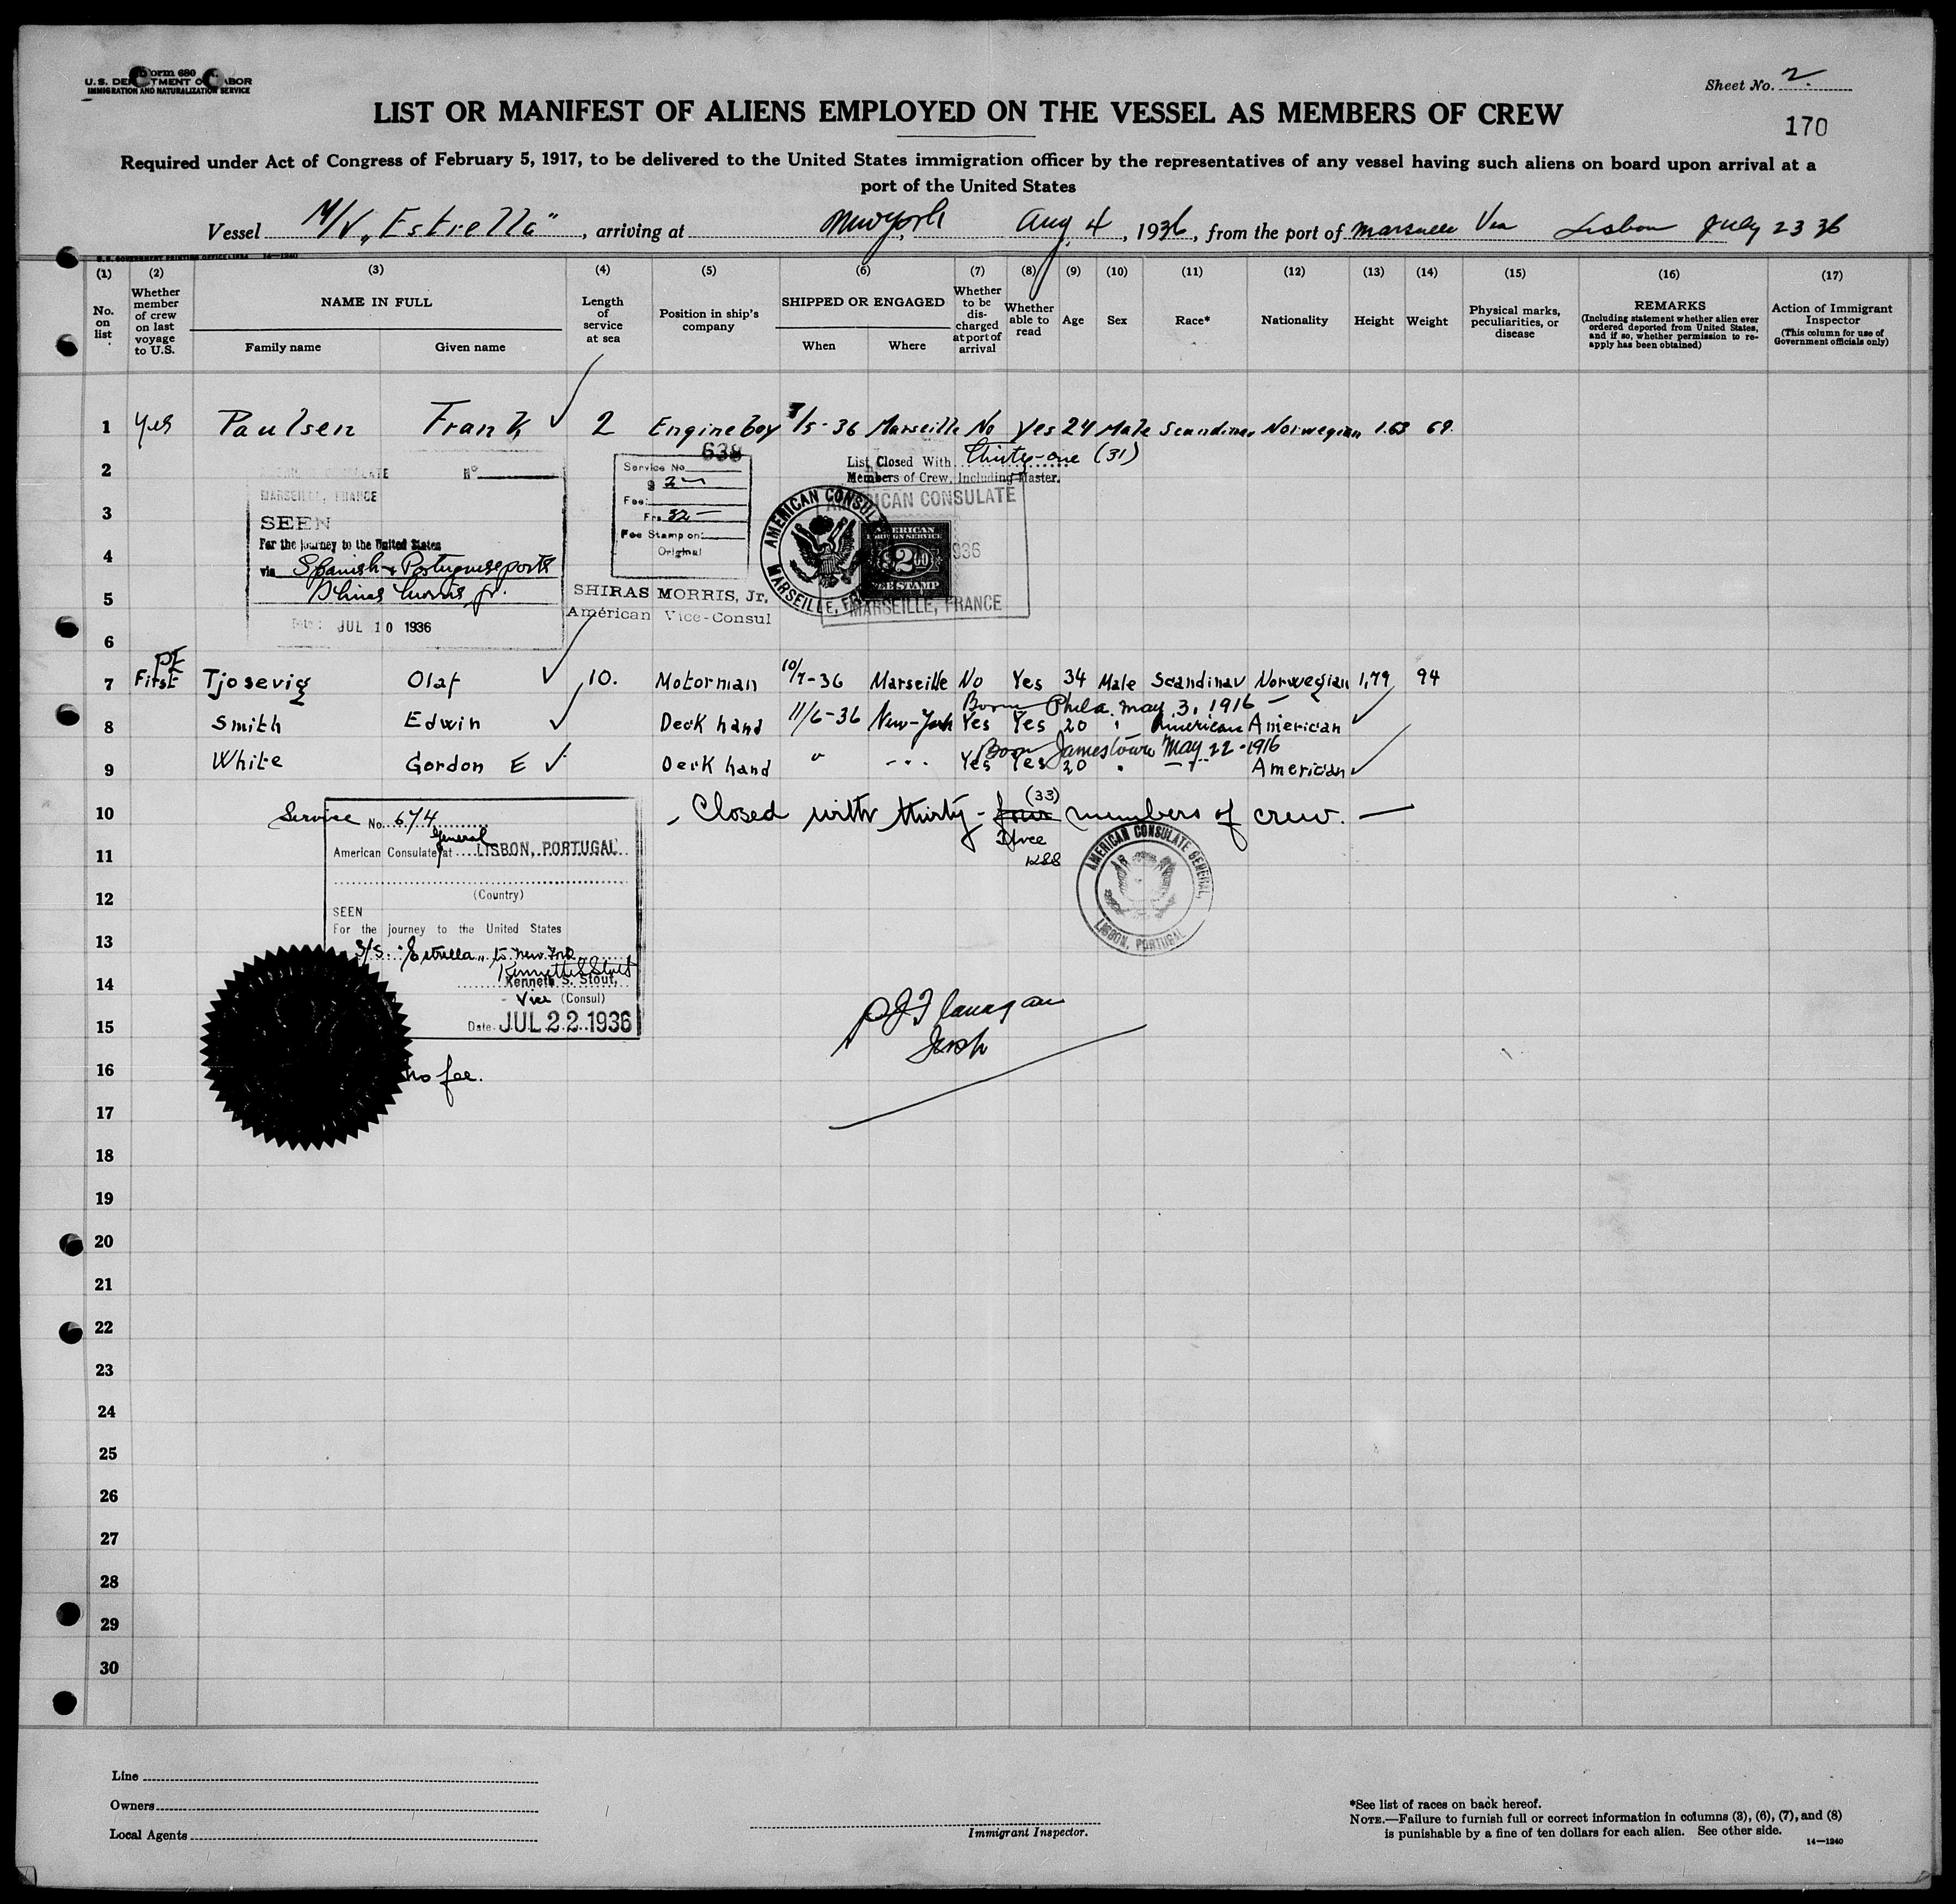 Form 680
U.S. DEPARTMENT OF LABOR
IMMIGRATION AND NATURALIZATION SERVICE
Sheet No. 2
LIST OR MANIFEST OF ALIENS EMPLOYED ON THE VESSEL AS MEMBERS OF CREW
170
Required under Act of Congress of February 5, 1917, to be delivered to the United States immigration officer by the representatives of any vessel having such aliens on board upon arrival at a
port of the United States
Vessel M/V „Estrella" , arriving at New York Aug 4 , 1936, from the port of Marseille Via Lisbon July 23 36
U.S. GOVERNMENT PRINTING OFFICE: 14—1240
(1) (2) (3) (4) (5) (6) (7) (8) (9) (10) (11) (12) (13) (14) (15) (16) (17)
No. on list
Whether member of crew on last voyage to U.S.
NAME IN FULL
Family name Given name
Length of service at sea
Position in ship's company
SHIPPED OR ENGAGED
When Where
Whether to be discharged at port of arrival
Whether able to read
Age
Sex
Race*
Nationality
Height
Weight
Physical marks, peculiarities, or disease
REMARKS
(Including statement whether alien ever ordered deported from United States, and if so, whether permission to reapply has been obtained)
Action of Immigrant Inspector
(This column for use of Government officials only)
1 yes Paulsen Frank 2 Engine boy /5-36 Marseille No Yes 24 Male Scandinav Norwegian 1.63 69.
2
3
4
5
6
MARSEILLE, FRANCE
N°
SEEN
For the journey to the United States
via Spanish & Portuguese ports
Shiras Morris, Jr.
Date: JUL 10 1936
638
Service No.
$ 2
Fee:
Frs. 32 —
Fee Stamp on:
Original
SHIRAS MORRIS, Jr.
American Vice-Consul
List Closed With Thirty-one (31)
Members of Crew, Including Master.
AMERICAN CONSULATE
MARSEILLE, FRANCE
AMERICAN FOREIGN SERVICE
$2.00
FEE STAMP
AMERICAN CONSULATE
1936
MARSEILLE, FRANCE
PE
7 First Tjosevig Olaf 10. Motorman 10/7-36 Marseille No Yes 34 Male Scandinav Norwegian 1,79 94
Born Phila. May 3, 1916 —
8 Smith Edwin Deck hand 11/6-36 New-York Yes Yes 20 " American American
Born Jamestown May 22-1916
9 White Gordon E Deck hand " " Yes Yes 20 " — " — American
10 Closed with thirty - four (33) members of crew. —
Three
KSS
11
12
13
14
15
16
17
18
19
20
21
22
23
24
25
26
27
28
29
30
Service No. 674
American Consulate General at LISBON, PORTUGAL
(Country)
SEEN
For the journey to the United States
S/S. "Estrella" to New York
Kenneth S. Stout
Kenneth S. Stout,
Vice (Consul)
Date JUL 22 1936
no fee.
AMERICAN CONSULATE GENERAL,
LISBON, PORTUGAL
P J Flanagan
Insp
Line
Owners
Local Agents
Immigrant Inspector.
*See list of races on back hereof.
NOTE.—Failure to furnish full or correct information in columns (3), (6), (7), and (8)
is punishable by a fine of ten dollars for each alien. See other side.
14—1240